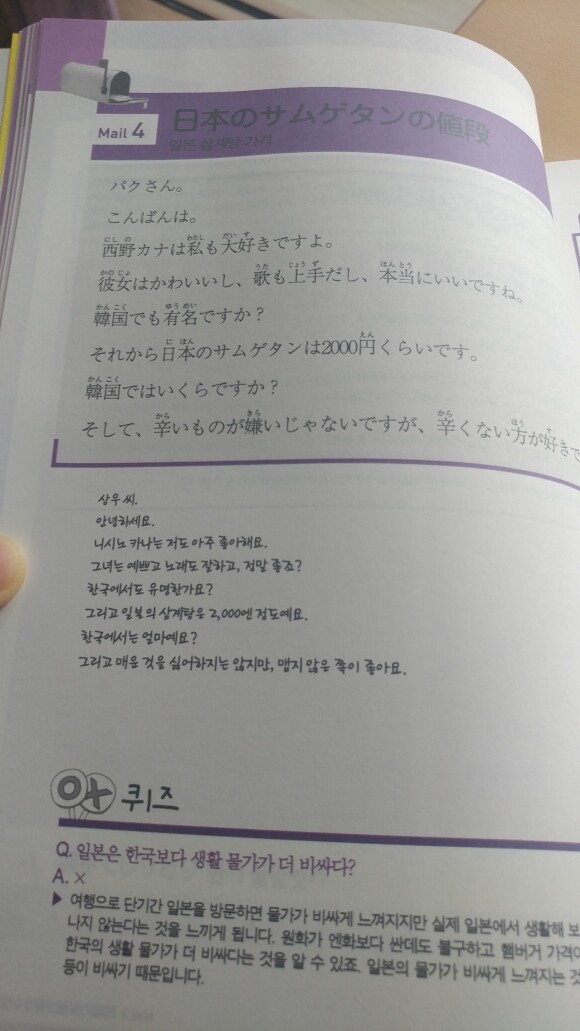 Mail 4
日本のサムゲタンの値段
일본 삼계탕 가격
パクさん。
こんばんは。
西野カナは私も大好きですよ。
彼女はかわいいし、歌も上手だし、本当にいいですね。
韓国でも有名ですか？
それから日本のサムゲタンは2000円くらいです。
韓国ではいくらですか？
そして、辛いものが嫌いじゃないですが、辛くない方が好きで
상우 씨.
안녕하세요.
니시노 카나는 저도 아주 좋아해요.
그녀는 예쁘고 노래도 잘하고, 정말 좋죠?
한국에서도 유명한가요?
그리고 일본의 삼계탕은 2,000엔 정도예요.
한국에서는 얼마예요?
그리고 매운 것을 싫어하지는 않지만, 맵지 않은 쪽이 좋아요.
OX 퀴즈
Q. 일본은 한국보다 생활 물가가 더 비싸다?
A. X
▶ 여행으로 단기간 일본을 방문하면 물가가 비싸게 느껴지지만 실제 일본에서 생활해 보
나지 않는다는 것을 느끼게 됩니다. 원화가 엔화보다 싼데도 불구하고 햄버거 가격이
한국의 생활 물가가 더 비싸다는 것을 알 수 있죠. 일본의 물가가 비싸게 느껴지는 것
등이 비싸기 때문입니다.